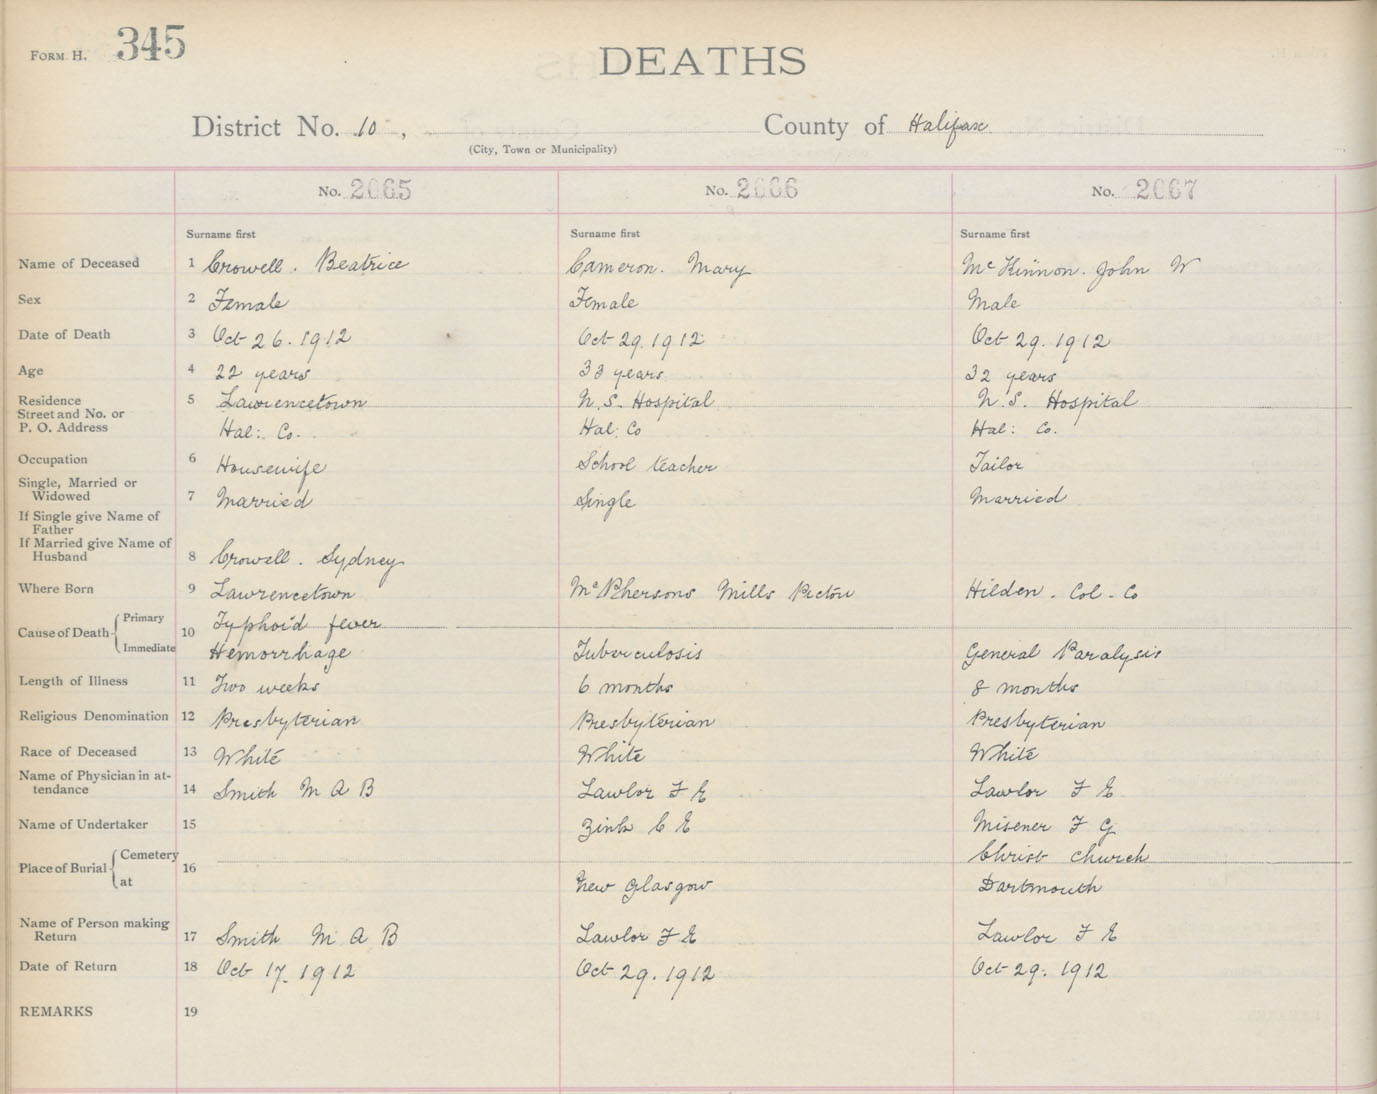 FORM H. 345
DEATHS
District No. 10, County of Halifax
(City, Town or Municipality)
No. 2065 No. 2066 No. 2067
Surname first Surname first Surname first
Name of Deceased 1 Crowell. Beatrice Cameron. Mary McKinnon. John W
Sex 2 Female Female Male
Date of Death 3 Oct 26. 1912 Oct 29. 1912 Oct 29. 1912
Age 4 22 years 33 years 32 years
Residence 5 Lawrencetown N. S. Hospital N. S. Hospital
Street and No. or
P. O. Address Hal: Co. Hal: Co Hal: Co.
Occupation 6 Housewife School teacher Tailor
Single, Married or
Widowed 7 Married Single Married
If Single give Name of
Father
If Married give Name of
Husband 8 Crowell. Sydney
Where Born 9 Lawrencetown McPhersons Mills Pictou Hilden. Col. Co
Cause of Death 10 Primary Typhoid fever
Immediate Hemorrhage Tuberculosis General Paralysis
Length of Illness 11 Two weeks 6 months 8 months
Religious Denomination 12 Presbyterian Presbyterian Presbyterian
Race of Deceased 13 White White White
Name of Physician in at-
tendance 14 Smith M A B Lawlor F E Lawlor F E
Name of Undertaker 15 Zink C E Misener F G
Place of Burial 16 Cemetery Christ Church
at New Glasgow Dartmouth
Name of Person making
Return 17 Smith M A B Lawlor F E Lawlor F E
Date of Return 18 Oct 17. 1912 Oct 29. 1912 Oct 29. 1912
REMARKS 19